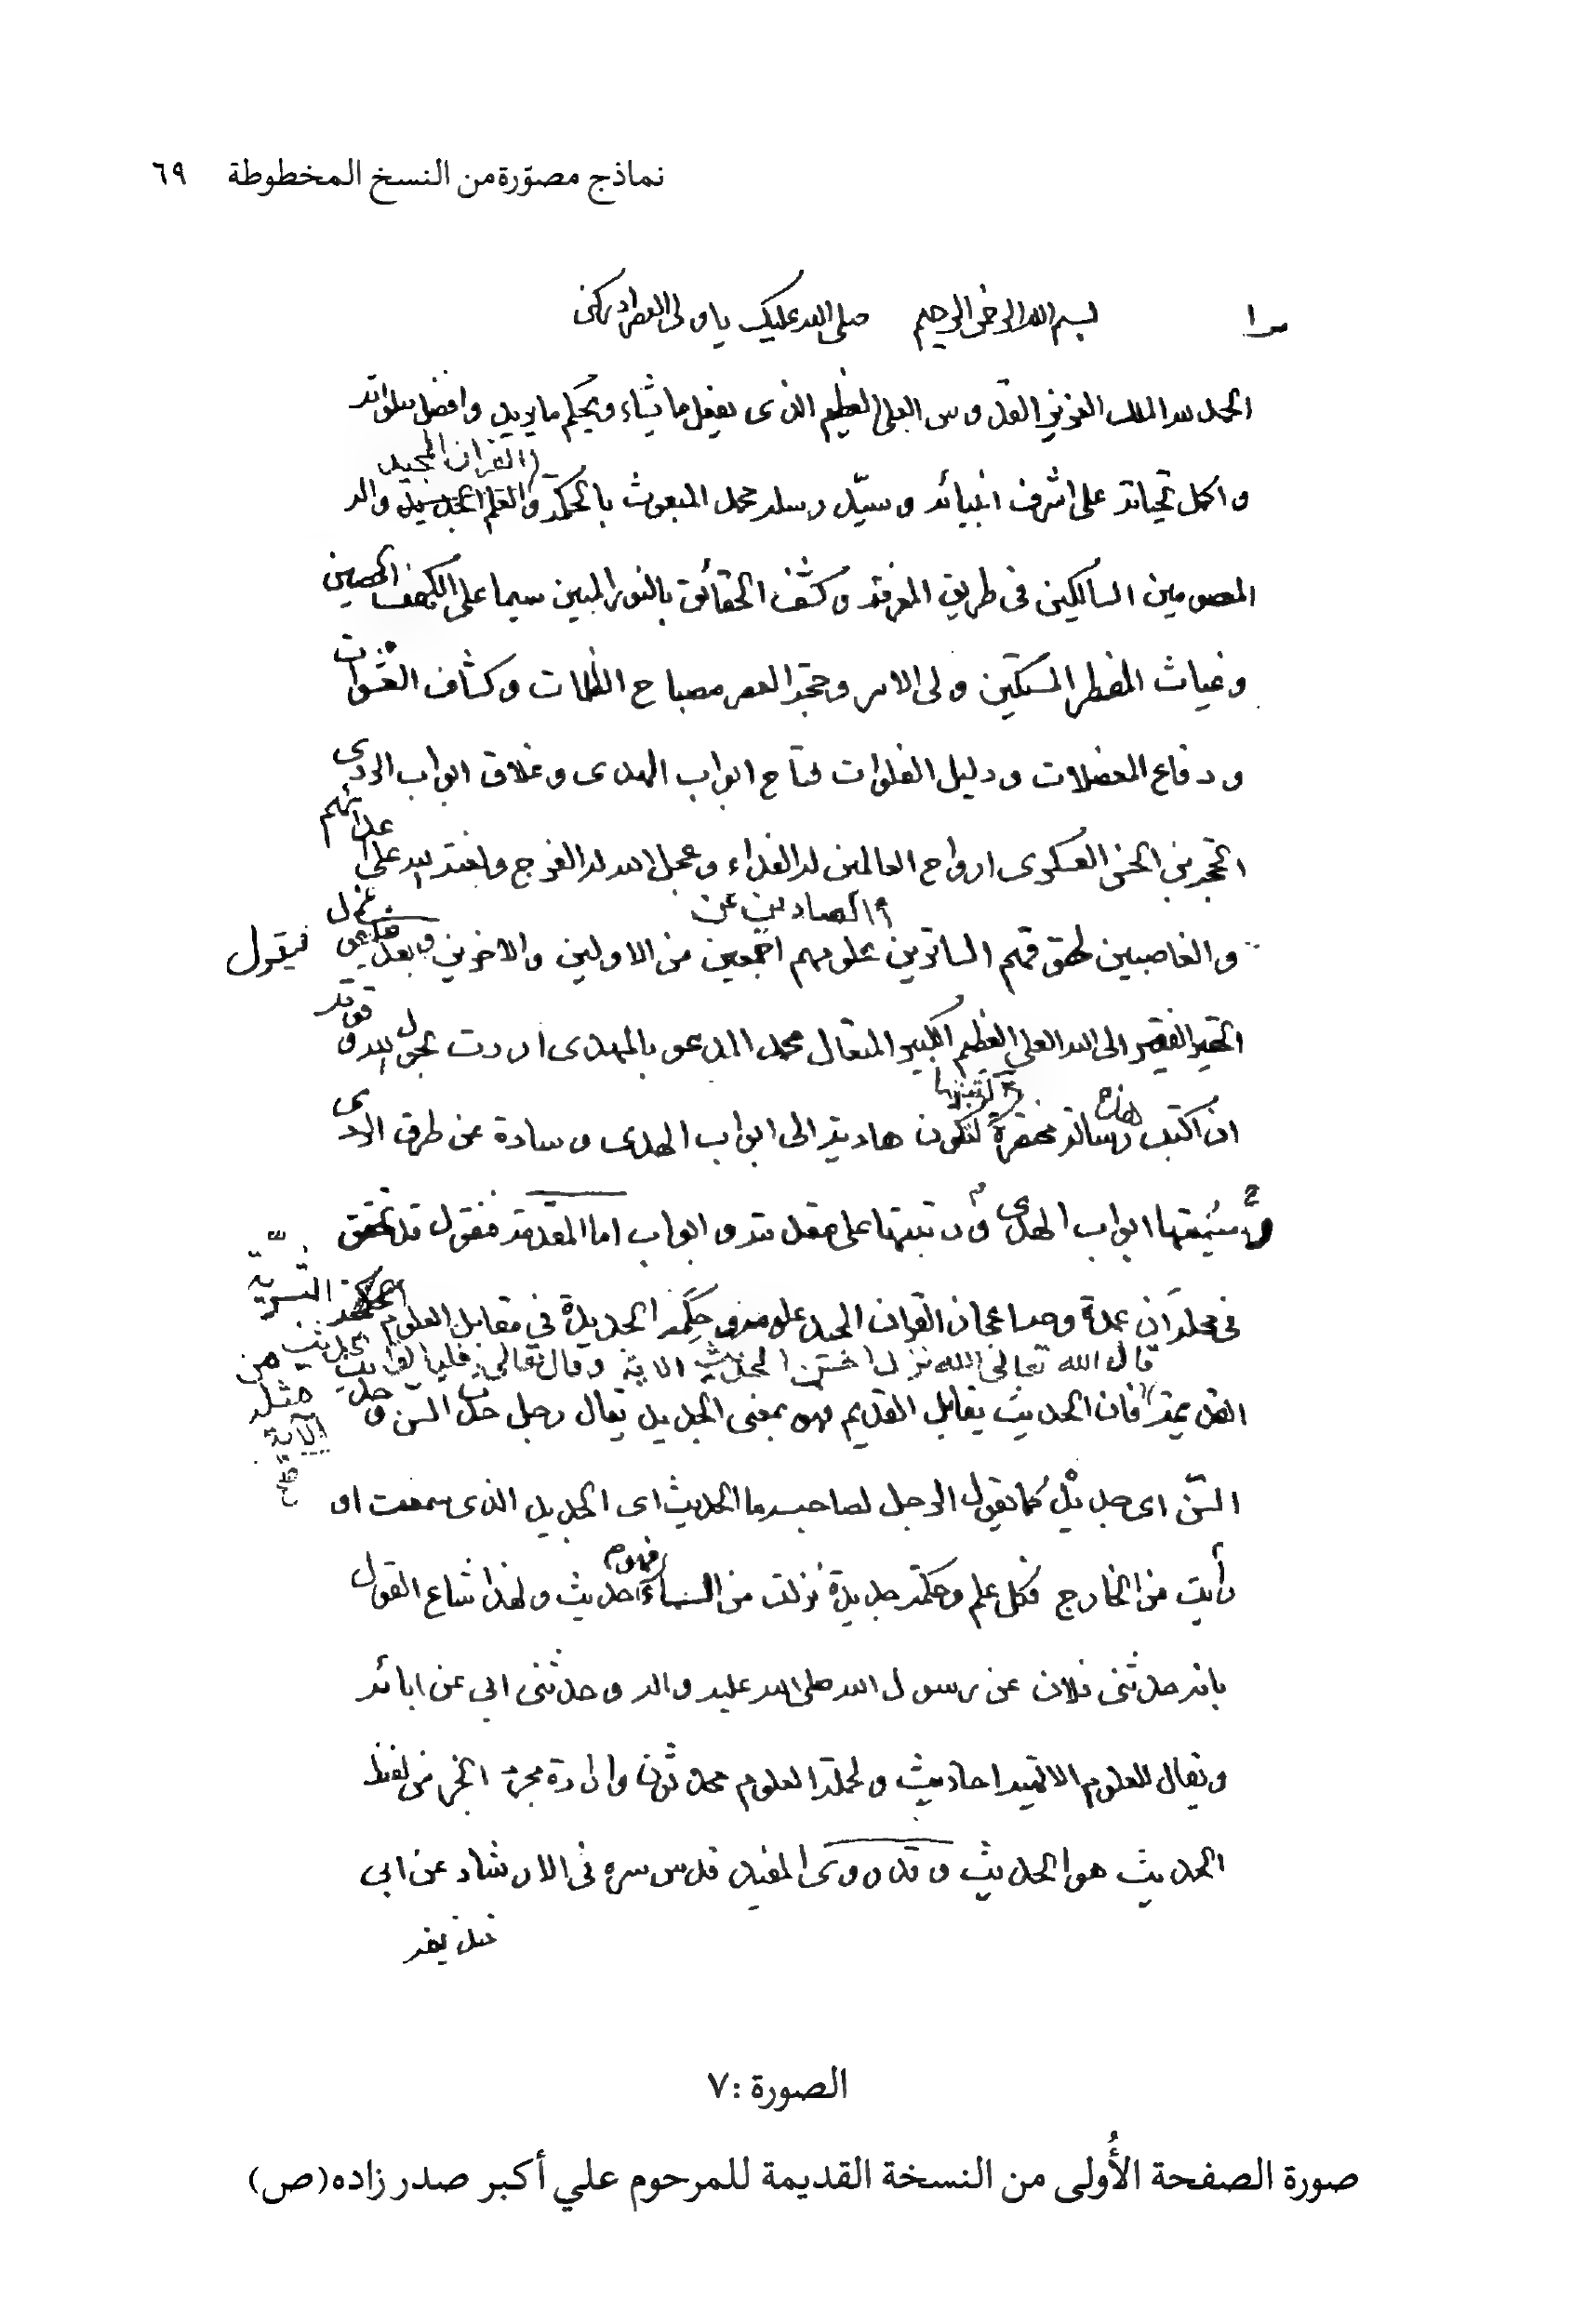 نماذج مصوّرة من النسخ المخطوطة ٦٩
بسم الله الرحمن الرحيم صلى الله عليك يا ولى العصر ادركنى
الحمد لله الملك العزيز القدوس العلى العظيم الذى يفعل ما يشاء ويحكم ما يريد وافضل صلواته
القران المجيد
واكمل تحياته على اشرف انبيائه وسيّد رسله محمد المبعوث بالحكمة والعلم الجديد واله
المعصومين السالكين فى طريق المعرفة وكشف الحقائق بالنور المبين سيما على الكهف الحصين
وغياث المضطر المستكين ولى الامر وحجة العصر مصباح الظلمات وكشاف العشوات
ودفاع المعضلات ودليل الفلوات فتاح ابواب الهدى وغلاق ابواب الردى
الحجة بن الحسن العسكرى ارواح العالمين له الفداء وعجل الله له الفرج ولعنة الله على اعدائهم
الصادين عن
والغاصبين لحقوقهم الساترين علومهم اجمعين من الاولين والاخرين وبعد فيقول
الحقير الفقير الى الله العلى العظيم الكبير المتعال محمد المدعو بالمهدى اردت بحول الله وقوته
ان اكتب هذه رسالة مختصرة لتكون هادية الى ابواب الهدى وسادة عن طرق الردى
وسميتها ابواب الهدى ورتبتها على مقدمة وابواب اما المقدمة فنقول قد تحقق
فى محله ان عمدة وجه اعجاز القران المجيد علومه وحِكَمه الجديدة فى مقابل العلوم البشرية
قال الله تعالى الله نزل احسن الحديث الاية وقال تعالى فليأتوا بحديث من مثله الآية
القديمة فان الحديث يقابل القديم فهو بمعنى الجديد يقال رجل حدث السن و
السّن اى جديد كما يقول الرجل لصاحبه ما الحديث اى الجديد الذى سمعت او
رأيت من الخارج فكل علم وحكمة جديدة نزلت من السماء فهو حديث ولهذا شاع القول
بانه حدثنى فلان عن رسول الله صلى الله عليه واله وحدثنى ابى عن ابائه
ويقال للعلوم الالهية احاديث ولحملة العلوم محدثون وارادة مجرد الخبر من لفظ
الحديث هو الحديث وقد روى المفيد قدس سره فى الارشاد عن ابى
الصورة :٧
صورة الصفحة الأُولى من النسخة القديمة للمرحوم علي أكبر صدر زاده(ص)